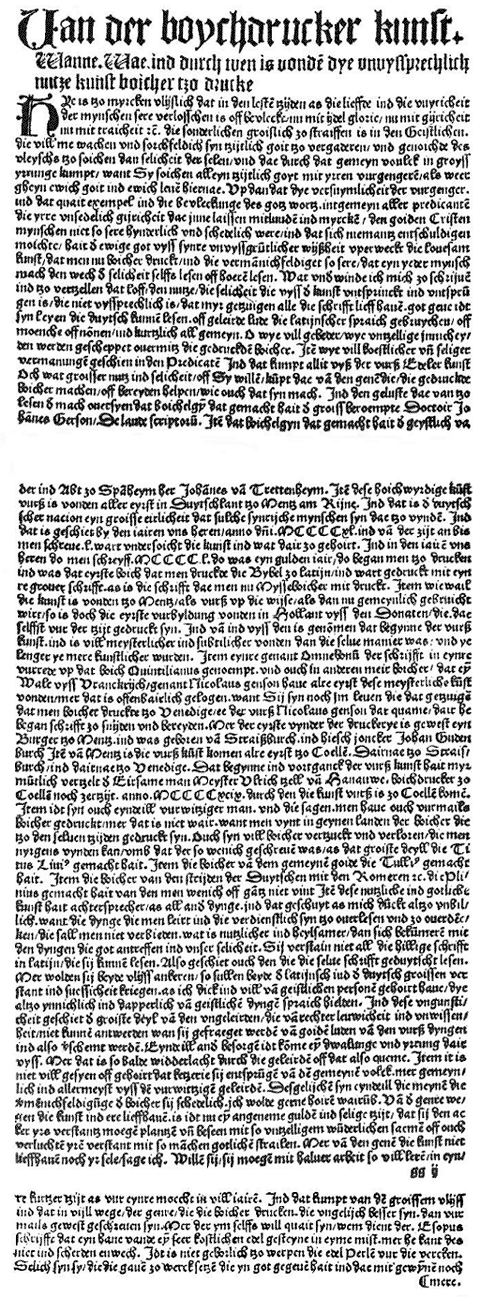 Van der boychdrucker kunst.
Wanne. Wae. ind durch wen is vondē dye vnvyssprechlich
nutze kunst boicher tzo drucke
HYe is tzo myrcken vlijslich dat in den lestē tzijden as die lieffde ind die vuyricheit
der mynschen sere verlosschen is off bevleckt/nu mit ijdel glorie/nu mit gijricheit
nu mit traicheit ꝛc. die sonderlichen groislich zo straiffen is in den Geistlichen.
die vill me wachen vnd sorchfeldich syn tzijtlich goit tzo vergaderen/vnd genoichde des
vleyschs tzo soichen dan selicheit der selen/vnd dae durch dat gemeyn vouck in groyss
yrrunge kumpt/want Sy soichen alleyn tzijtlich goyt mit yrren vurgengeren/als weer
gheyn ewich goit ind ewich leuē hiernae. Vp dan dat dye versuymlicheit der vurgenger.
ind dat quait exempel ind die bevleckunge des gotz wortz. intgemeyn aller predicantē
die yrre vnsedelich gijricheit dae jnne laissen mitluude ind myrckē/den goiden Cristen
mynschen niet so sere hynderlich vnd schedelich were/ind dat sich niemantz entschuldigen
moichte/hait ð ewige got vyss synre vnvyssgrütlicher wijßheit vperweckt die louesam
kunst/dat men nu boicher druckt/ind die vermānichfeldiget so sere/dat eyn yeder mynsch
mach den wech ð selicheit selffs lesen off hoerē lesen. Wat vndwinde ich mich zo schrijuē
ind tzo vertzellen dat loff/den nutze/die selicheit die vyss ð kunst vntsprinckt ind vntsprū
gen is/die niet vyssprechlich is/dat myr getzuigen alle die schrifft lieff hauē. got geue idt
syn leyen die duytsch kunnē lesen. off geleirde lude die latijnscher spraich gebruychen/off
moenche off nonnen/ind kurtzlich all gemeyn. O wye vill gebeder/wye vntzellige jnnichey/
den werden geschepper ouermitz die gedrucktē boicher. Itē wye vill koestlicher vñ seliger
vermanungē geschien in den Predicatē Ind dat kumpt allit vyß der vurß Eedeler kunst
Och wat groisser nutz ind selicheit/off Sy willē/kūpt dae vā den genē die/die gedruckde
boicher machen/off bereyden helpen/wie ouch dat syn mach. Ind den geluste dae van tzo
lesen ð mach ouersyen dat boichelgȳ dat gemacht hait ð groiss beroempte Doctoir Jo
hānes Gerson/De laude scriptorū. Itē dat boichelgyn dat gemacht hait ð geystlich va
der ind Abt zo Spāheym her Johānes vā Trettenheym. Itē dese hoichwyrdige kūst
vurß is vonden aller eyrst in Duytschlant tzo Mentz am Rijne. Ind dat is ð duytsch
scher nacion eyn groisse eirlicheit dat sulche synrijche mynschen syn dae tzo vyndē. Ind
dat is geschiet by den iairen vns heren/anno dñi. MCCCCxl. ind vā der zijt an bis
men schreue. l. wart vndersoicht die kunst ind wat dair zo gehoirt. Ind in den iairē vns
heren do men schreyff. MCCCCl. do was eyn gulden iair/do began men tzo drucken
ind was dat eyrste boich dat men druckde die Bybel zo latijn/ind wart gedruckt mit eynre
re grouer schrifft. as is die schrifft dae men nu Mysseboicher mit druckt. Item wiewail
die kunst is vonden tzo Mentz/als vurß vp die wijse/als dan nu gemeynlich gebruicht
wirt/so is doch die eyrste vurbyldung vonden in Hollant vyss den Donaten/die dae
selffst vur der tzijt gedruckt syn. Ind vā ind vyss den is genōmen dat begynne der vurß
kunst. ind is vill meysterlicher ind subtilicher vonden dan die selue manier was/vnd ye
lenger ye mere kunstlicher wurden. Item eynre genant Omnebonū der schrijfft in eynre
vurrede vp dat boich Quintilianus genoempt. vnd ouch in anderen meir boicher/dat eȳ
Wale vyss Vranckrijch/genant Nicolaus genson haue alre eyrst dese meysterliche kūst
vonden/mer dat is offenbairlich gelogen. want Sij syn noch jm leuen die dat getzuigē
dat men boicher druckte tzo Venedige/ee der vurß Nicolaus genson dar quame/dair he
began schrifft zo snijden vnd bereyden. Mer der eyrste vynder der druckerye is gewest eyn
Burger tzo Mentz. ind was geboren vā Straißburch. ind hiesch joncker Johan Guden
burch Itē vā Mentz is die vurß kūst komen alre eyrst tzo Coellē. Dairnae tzo Straiß/
burch/ind dairnae tzo Venedige. Dat begynne ind vortganck der vurß kunst hait myr
mūtlich vertzelt ð Eirsame man Meyster Vlrich tzell vā Hanauwe. boichdrucker zo
Coellē noch zertzijt. anno. MCCCCxcix. durch den die kunst vurß is zo Coellē komē.
Item idt syn ouch eyndeill vurwitziger man. vnd die sagen. men haue ouch vurmails
boicher gedruckt/mer dat is niet wair. want men vynt in geynen landen der boicher die
tzo den seluen tzijden gedruckt syn. Ouch syn vill boicher vertzuckt vnd verloren/die men
nyrgens vynden kan/vmb dat der so wenich geschreuē was/as dat groiste deyll die Ti
tus Liui9 gemacht hait. Item die boicher vā dem gemeynē goide die Tulli9 gemacht
hait. Item die boicher van den strijden der Duytschen mit den Romeren ꝛc. die Pli-
nius gemacht hait van den men wenich off gātz niet vint Itē dese nutzliche ind gotliche
kunst hait achtersprecher/as all and dynge. ind dat geschuyt as mich dückt altzo vnbil/
lich. want die dynge die men leirt ind die verdienstlich syn tzo ouerlesen vnd zo ouerdēc/
ken/die sall men niet verbieden. wat is nutzlicher ind heylsamer/dan sich bekūmerē mit
den dyngen die got antreffen ind vnser selicheit. Sij verstain niet all die hillige schrifft
in latijn/die sij kunnē lesen. Also geschiet ouch den die die selue schrifft geduytscht lesen.
Mer wolden sij beyde vlijss ankeren/so sullen beyde ð latijnsch ind ð duytsch groissen ver
stant ind suessicheit kriegen. as ich dick ind vill vā geistlichen personē gehoirt haue/dye
altzo ynnichlich ind dapperlich vā geistlichē dyngē spraich hielden. Ind dese vngunsti/
cheit geschiet ð groiste deyl van den vngeleirden/die vā rechter leuwicheit ind vnwissen/
heit/niet kunnē antwerden wan sij gefraeget werdē vā goidē luden vā den vurß dyngen
ind also ȳschemt werdē. Eyndeill and besorgē idt kōme eȳ dwalunge vnd yrrung dair
vyss. Mer dat is so balde widderlacht durch die geleirdē off dat also queme. Item it is
niet vill gesyen off gehoirt dat ketzerie sij entsprūgē vā dē gemeynē volck. mer gemeyn/
lich ind allermeyst vyss dē vurwitzigē geleirdē. Desgelijchē syn eyndeill die meynē die
vmēnichfeldigūge ð boicher sij schedelich. jch wolde gerne hoirē wairūb. Vā ð genre we/
gen die kunst ind ere lieffhauē. is idt nu eȳ angeneme guldē ind selige tzijt/dat sij den ac
ker yrs verstantz moegē plantzē vñ beseen mit so vntzelligem wūderlichen sacmē off ouch
verluchtē yrē verstant mit so māchen gotlichē strailen. Mer vā den genē die kunst niet
lieffhauē noch yr sele/sage ich. Willē sij/sij moegē mit haluer arbeit so vill lerē/in eyn/
gg ij
re kurtzer tzijt as vur eynre moecht in vill iairē. Ind dat kumpt van dē groissem vlijss
ind dat in vijll wege/der genre/die die boicher drucken. die vngelijch besser syn. dan vur
mails gewest geschreuen syn. Mer der ym selffs will quait syn/wem dient der. Esopus
schrijffe dat eyn hane vande eȳ seer kostlichen edel gesteyne in eyme mist. mer he kant des
niet ind scherden enwech. Idt is niet geborlich tzo werpen die edel Perlē vur die vercken.
Selich syn sy/die die gauē zo werck setzē die yn got gegeuē hait ind dae mit gewynē noch
Cmere.